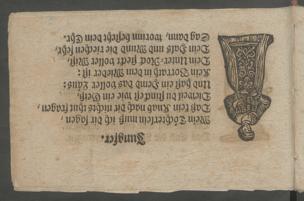 Jungfer.
Mein Töchterlein muß ich dir sagen
Daß kein Knab nach dir nichts thut fragen,
Dieweil du stinckst wie ein Geiß,
Und hast ein Hemd das voller Läuß:
Kein Vorrath in dem Mieder ist:
Dein Unter-Rock steckt voller Mist,
Dein Halß und Mund die riechen sehr,
Sag dann, worinn besteht dein Ehr.